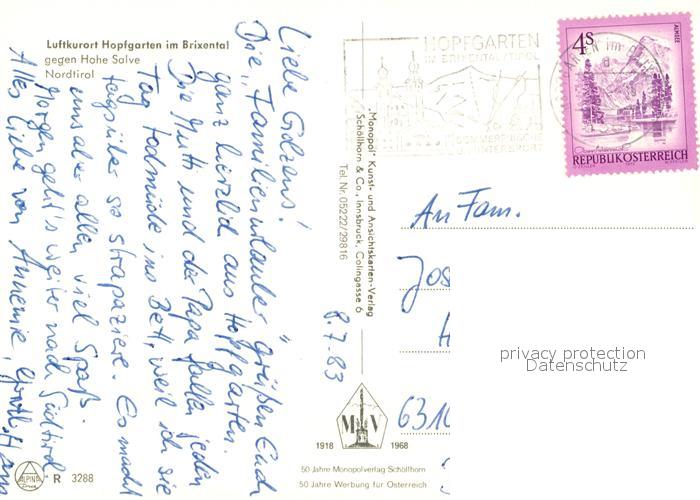 Luftkurort Hopfgarten im Brixental
gegen Hohe Salve
Nordtirol
8.7.83
Liebe
Die „Familienurlauber" grüßen Euch
ganz herzlich aus Hopfgarten.
Die Mutti und der Papa fallen jeden
Tag todmüde ins Bett, weil ich sie
tagsüber so strapaziere. Es macht
uns aber allen viel Spaß.
Morgen geht's weiter nach Südtirol
Alles Liebe von Annemie,
„Monopol" Kunst- und Ansichtskarten-Verlag
Schöllhorn & Co., Innsbruck, Colingasse 6
Tel. Nr. 05222/29816
HOPFGARTEN
IN BRIXENTAL/TIROL
SOMMERFRISCHE
WINTERSPORT
4s
ALMSEE
Oberösterreich
REPUBLIK ÖSTERREICH
An Fam.
Jos
H
631
privacy protection
Datenschutz
M V
1918 1968
50 Jahre Monopolverlag Schöllhorn
50 Jahre Werbung für Österreich
ALPINA
R 3288